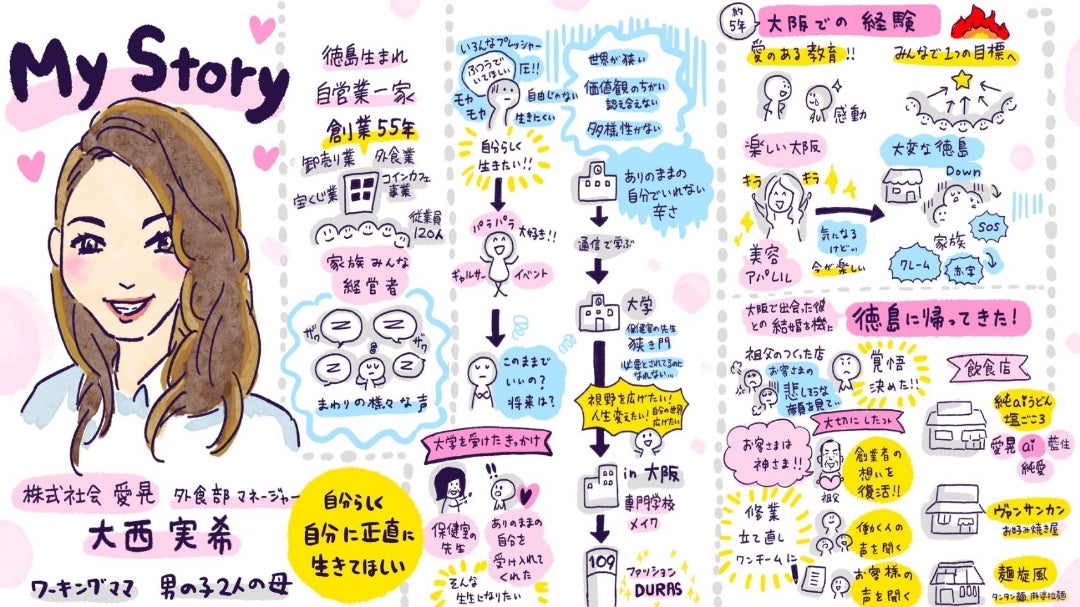 My Story
株式社会 愛晃 外食部 マネージャー
大西 実希
ワーキングママ 男の子2人の母
徳島生まれ
自営業一家
創業55年
卸売り業 外食業
宝くじ業 コインカフェ
事業
従業員
120人
家族みんな
経営者
ザワ
ザワ
まわりの様々な声
自分らしく
自分に正直に
生きてほしい
いろんなプレッシャー
圧!!
ふつうで
いてほしい
モヤ
モヤ
自由じゃない
生きにくい
自分らしく
生きたい!!
パラパラ
大好き!!
ギャルサー イベント
このままで
いいの?
将来は?
大学を受けたきっかけ
保健室
の先生
ありのままの
自分を
受け入れてくれた
そんな
先生になりたい
世界が狭い
価値観のちがい
認え合えない
多様性がない
ありのままの
自分でいれない
辛さ
通信で学ぶ
大学
保健室の先生
狭き門
必要とされてるのに
なれない...
視野を広げたい!
人生変えたい! 自分の世界
広げたい
in 大阪
専門学校
メイク
109
ファッション
DURAS
約
5年
大阪での 経験
愛のある教育!!
みんなで1つの目標へ
感動
楽しい大阪
キラ
キラ
美容
アパレル
気になる
けどい
今が楽しい
大変な徳島
Down
家族
SOS
クレーム
赤字
大阪で出会った彼
との 結婚を機に
徳島に帰ってきた!
祖父のつくった店
お客さまの
悲しそうな
顔見て...
覚悟
決めた!!
大切にしたコト
お客さまは
神さま!!
祖父
創業者の
想いを
復活!!
修業
立て直し
ワンチームに
働く人の
声を聞く
お客様の
声を聞く
飲食店
純aiうどん
塩ごころ
愛晃 ai 藍住
純愛
ヴァンサンカン
お好み焼き屋
麺旋風
タンタン麺,麻婆拉麺